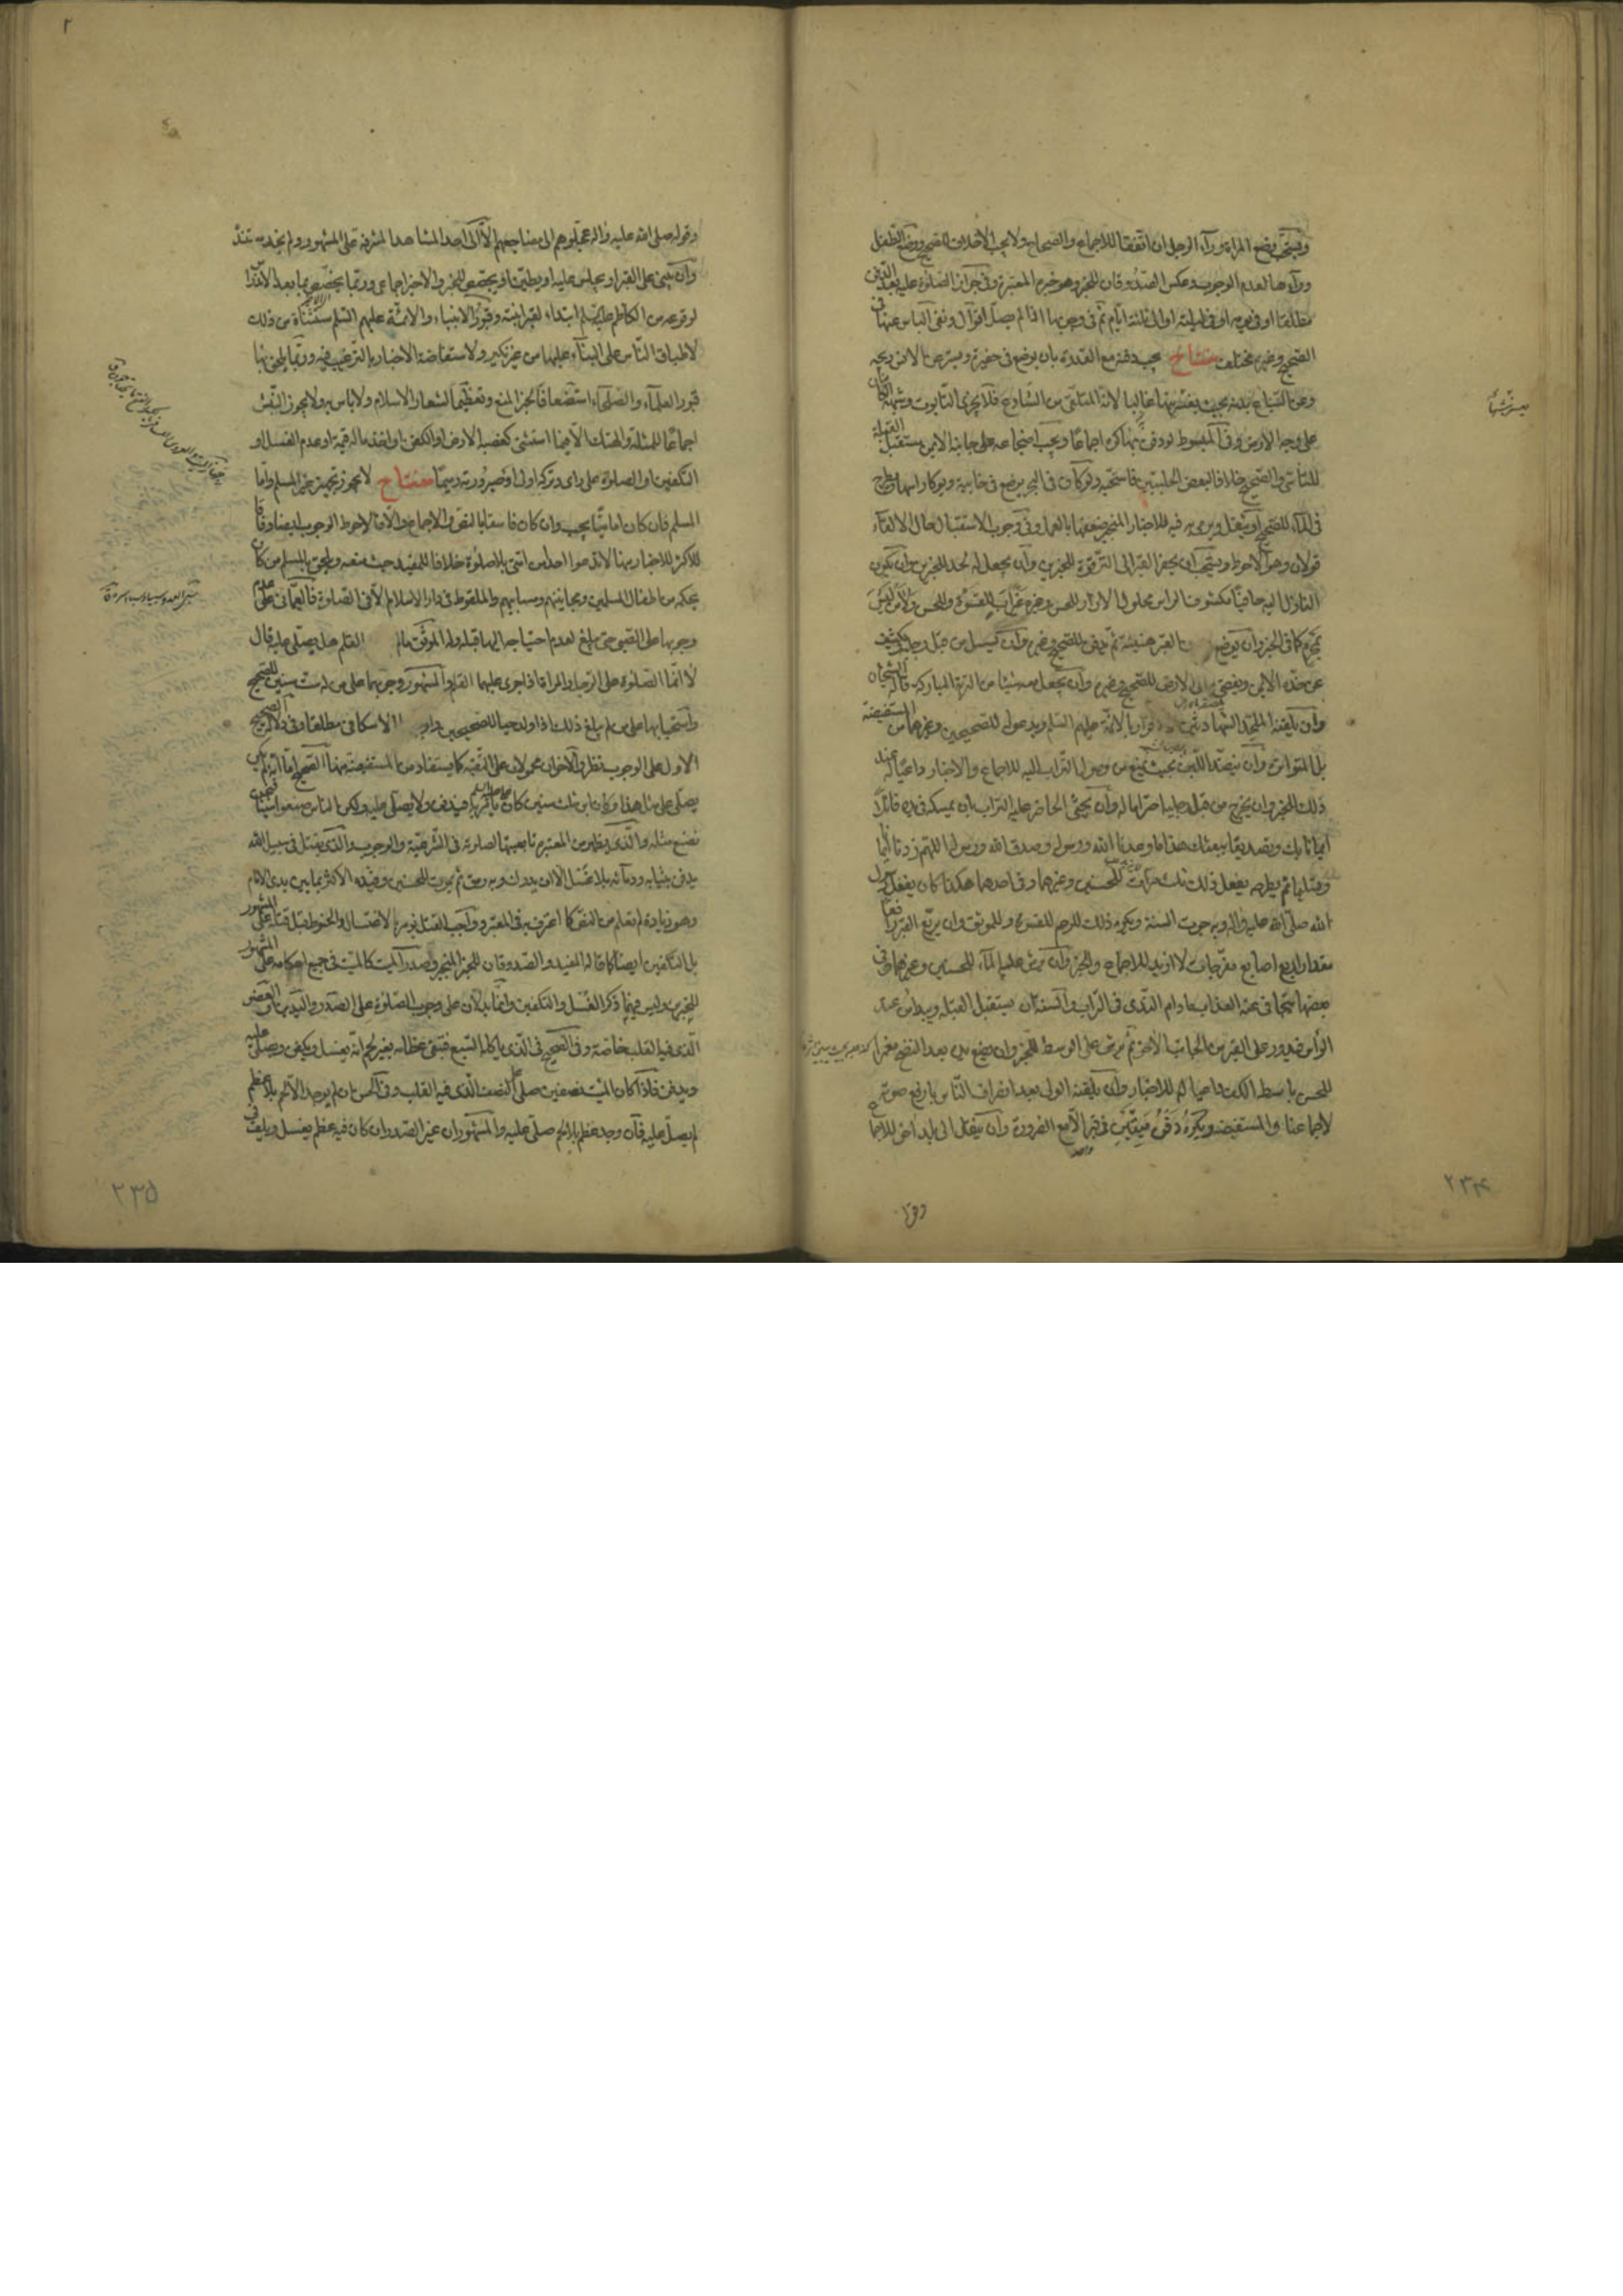 ويستحب وضع المراة ورآء الرجل ان اتفقا للاجماع والصحاح ولا يجب لاختلاف الصحيح ووضع الطفل
ورآءها لعدم الوجوب وعكس الصدوقان للخبر وهو خيرة المعتبر وفي جواز الصلوة عليه بعد الدفن
مطلقا او في يومه او في ليلته او الى ثلثة ايام ثم في وجوبها اذا لم يصل اقوال ونفى الباس عنها في
الصحيح وغيره مختلف مفتاح يجب دفنه مع القدرة بان يوضع في حفيرة ويستر عن الانس ريحه
وعن السباع بدنه بحيث يعسر نبشها غالبا لانه المتلقى من الشارع فلا يجزى التابوت
على وجه الارض وفي المبسوط لو دفن بها كره اجماعا ويجب اضجاعه على جانبه الايمن مستقبل القبلة
للتأسي والصحيح خلافا لبعض فاستحبه ولو كان في البحر يوضع في خابية ويوكأ راسها ويطرح
في المآء للصحيح او يثقل ويرمى به فيه للاخبار المنجبر ضعفها بالعمل وفي وجوب الاستقبال حال الالقآء
قولان وهو الاحوط ويستحب ان يحفر القبر الى الترقوة للخبرين وان يجعل له لحد للخبرين وان يكون
النازل اليه حافيا مكشوف الراس محلول الازرار للحسن وغيره
كما في الخبر وان يوضع القبر هنيئة ثم يدفن للصحيح وغيره وان
عن خده الايمن ويفضى به الى الارض للصحيح وغيره وان يجعل معه شيئا من التربة المباركة قاله الشيخان
وان يلقنه الملحد الشهادتين بالائمة عليهم السلم ويدعو له للصحيحين وغيرهما من المستفيضة
بل المتواترة وان ينضد اللبن بحيث يمنع من وصول التراب اليه للاجماع والاخبار داعيا له عند
ذلك للخبر وان يخرج من قبل رجليه احتراما له وان يحثى الحاضر عليه التراب بان يمسكه في يده قائلا
ايمانا بك وتصديقا ببعثك هذا ما وعدنا الله ورسوله وصدق الله ورسوله اللهم زدنا ايمانا
وتسليما ثم يطرحه يفعل ذلك ثلث مرات للحسنين وغيرهما وفي احدهما هكذا كان يفعل رسول
الله صلى الله عليه واله وبه جرت السنة ويكره ذلك للرحم للقسوة وللموثق وان يربع القبر رافعا
مقدار اربع اصابع مفرجات لا ازيد للاجماع والخبر وان يرش عليه المآء للحسنين وغيرهما وفي
بعضها يتجافى عنه العذاب ما دام الندى في التراب والسنة ان يستقبل القبلة ويبدأ من عند
الرأس فيدور على القبر من الجانب الاخر ثم يرش على الوسط للخبر وان يضع يده بعد النضح
للحسن باسط الكف داعيا له للاخبار وان يلقنه الولى بعد انصراف الناس بارفع صوته
لاجماعنا والمستفيضة ويكره دفن ميتين في قبر الا مع الضرورة وان ينقل الى بلد اخر للاجماع
واحد
وقوله
۲۳۴
وقوله صلى الله عليه واله عجلوهم الى مضاجعهم الا الى احد المشاهد المشرفة على المشهور ولم نجد به مستندا
وان يبنى على القبر او يجلس عليه او يطين او يجصص للخبر والاخير اجماعى وربما يخصص بما بعد الاندراس
لوقوعه من الكاظم عليه السلم ابتداء لقبر ابنته وقبور الانبياء والائمة عليهم السلم مستثناة من ذلك
لاطباق الناس على البنآء عليها من غير نكير ولاستفاضة الاخبار بالترغيب فيه وربما يلحق بها
قبور العلمآء والصلحآء استضعافا لخبر المنع وتعظيما لشعار الاسلام ولا باس به ولا يجوز النبش
اجماعا للمثلة والهتك الا فيما استثنى كغصب الارض او الكفن او اخذ ماله قيمة او عدم الغسل او
التكفين او الصلوة على راى وتركه اولى او صيرورته رميما مفتاح لا يجوز تجهيز غير المسلم واما
المسلم فان كان اماميا يجب وان كان فاسقا بالنص والاجماع والا فالاحوط الوجوب ايضا وفاقا
للاكثر للاخبار منها لا تدعوا احدا من امتى بلا صلوة خلافا للمفيد حيث منعه ويلحق بالمسلم من كان
بحكمه من اطفال المسلمين ومجانينهم ومسابيهم والملقوط في دار الاسلام الا في الصلوة فالعماني على عدم
وجوبها على الصبى حتى يبلغ لعدم احتياجه اليها قبله وللموثق الغلام هل يصلى عليه قال
لا انما الصلوة على الرجل والمراة اذا جرى عليهما القلم والمشهور وجوبها على من له ست سنين للصحيح
واستحبابها على من لم يبلغ ذلك اذا ولد حيا للصحيحين الاسكافي مطلقا وفي دلالة الصحيح
الاول على الوجوب نظر والآخران محمولان على التقية كما يستفاد من المستفيضة منها الصحيح اما انه لم يكن
يصلى على مثل هذا وكان ابن ثلث سنين كان على عليه السلم يامر به فيدفن ولا يصلى عليه ولكن الناس صنعوا شيئا فنحن
نصنع مثله والذى يظهر من المعتبرة تابعيتها لصلوته في الشرعية والوجوب والذى يقتل في سبيل الله
يدفن بثيابه ودمآئه بلا غسل الا ان يدرك وبه رمق ثم يموت للحسنين وقيده الاكثر بما بين يدى الامام
وهو زيادة لم تعلم من النص كما اعترف به في المعتبر وواجب القتل يؤمر بالاغتسال والحنوط قبل قتله على المشهور
بل التكفين ايضا كما قاله المفيد والصدوقان للخبر المنجبر وصدر الميت كالميت في جميع احكامه على المشهور
للخبرين وليس فيهما ذكر الغسل والتكفين وانما يدلان على وجوب الصلوة على الصدر واليدين او العضو
الذى فيه القلب خاصة وفي الصحيح في الذى ياكله السبع فتبقى عظامه بغير لحم انه يغسل ويكفن ويصلى عليه
ويدفن فاذا كان الميت نصفين صلى على النصف الذى فيه القلب وفي الحسن ان لم يوجد الا لحم بلا عظم
لم يصل عليه فان وجد عظم بلا لحم صلى عليه والمشهور ان غير الصدر ان كان فيه عظم يغسل ويلف في
۲۳۵